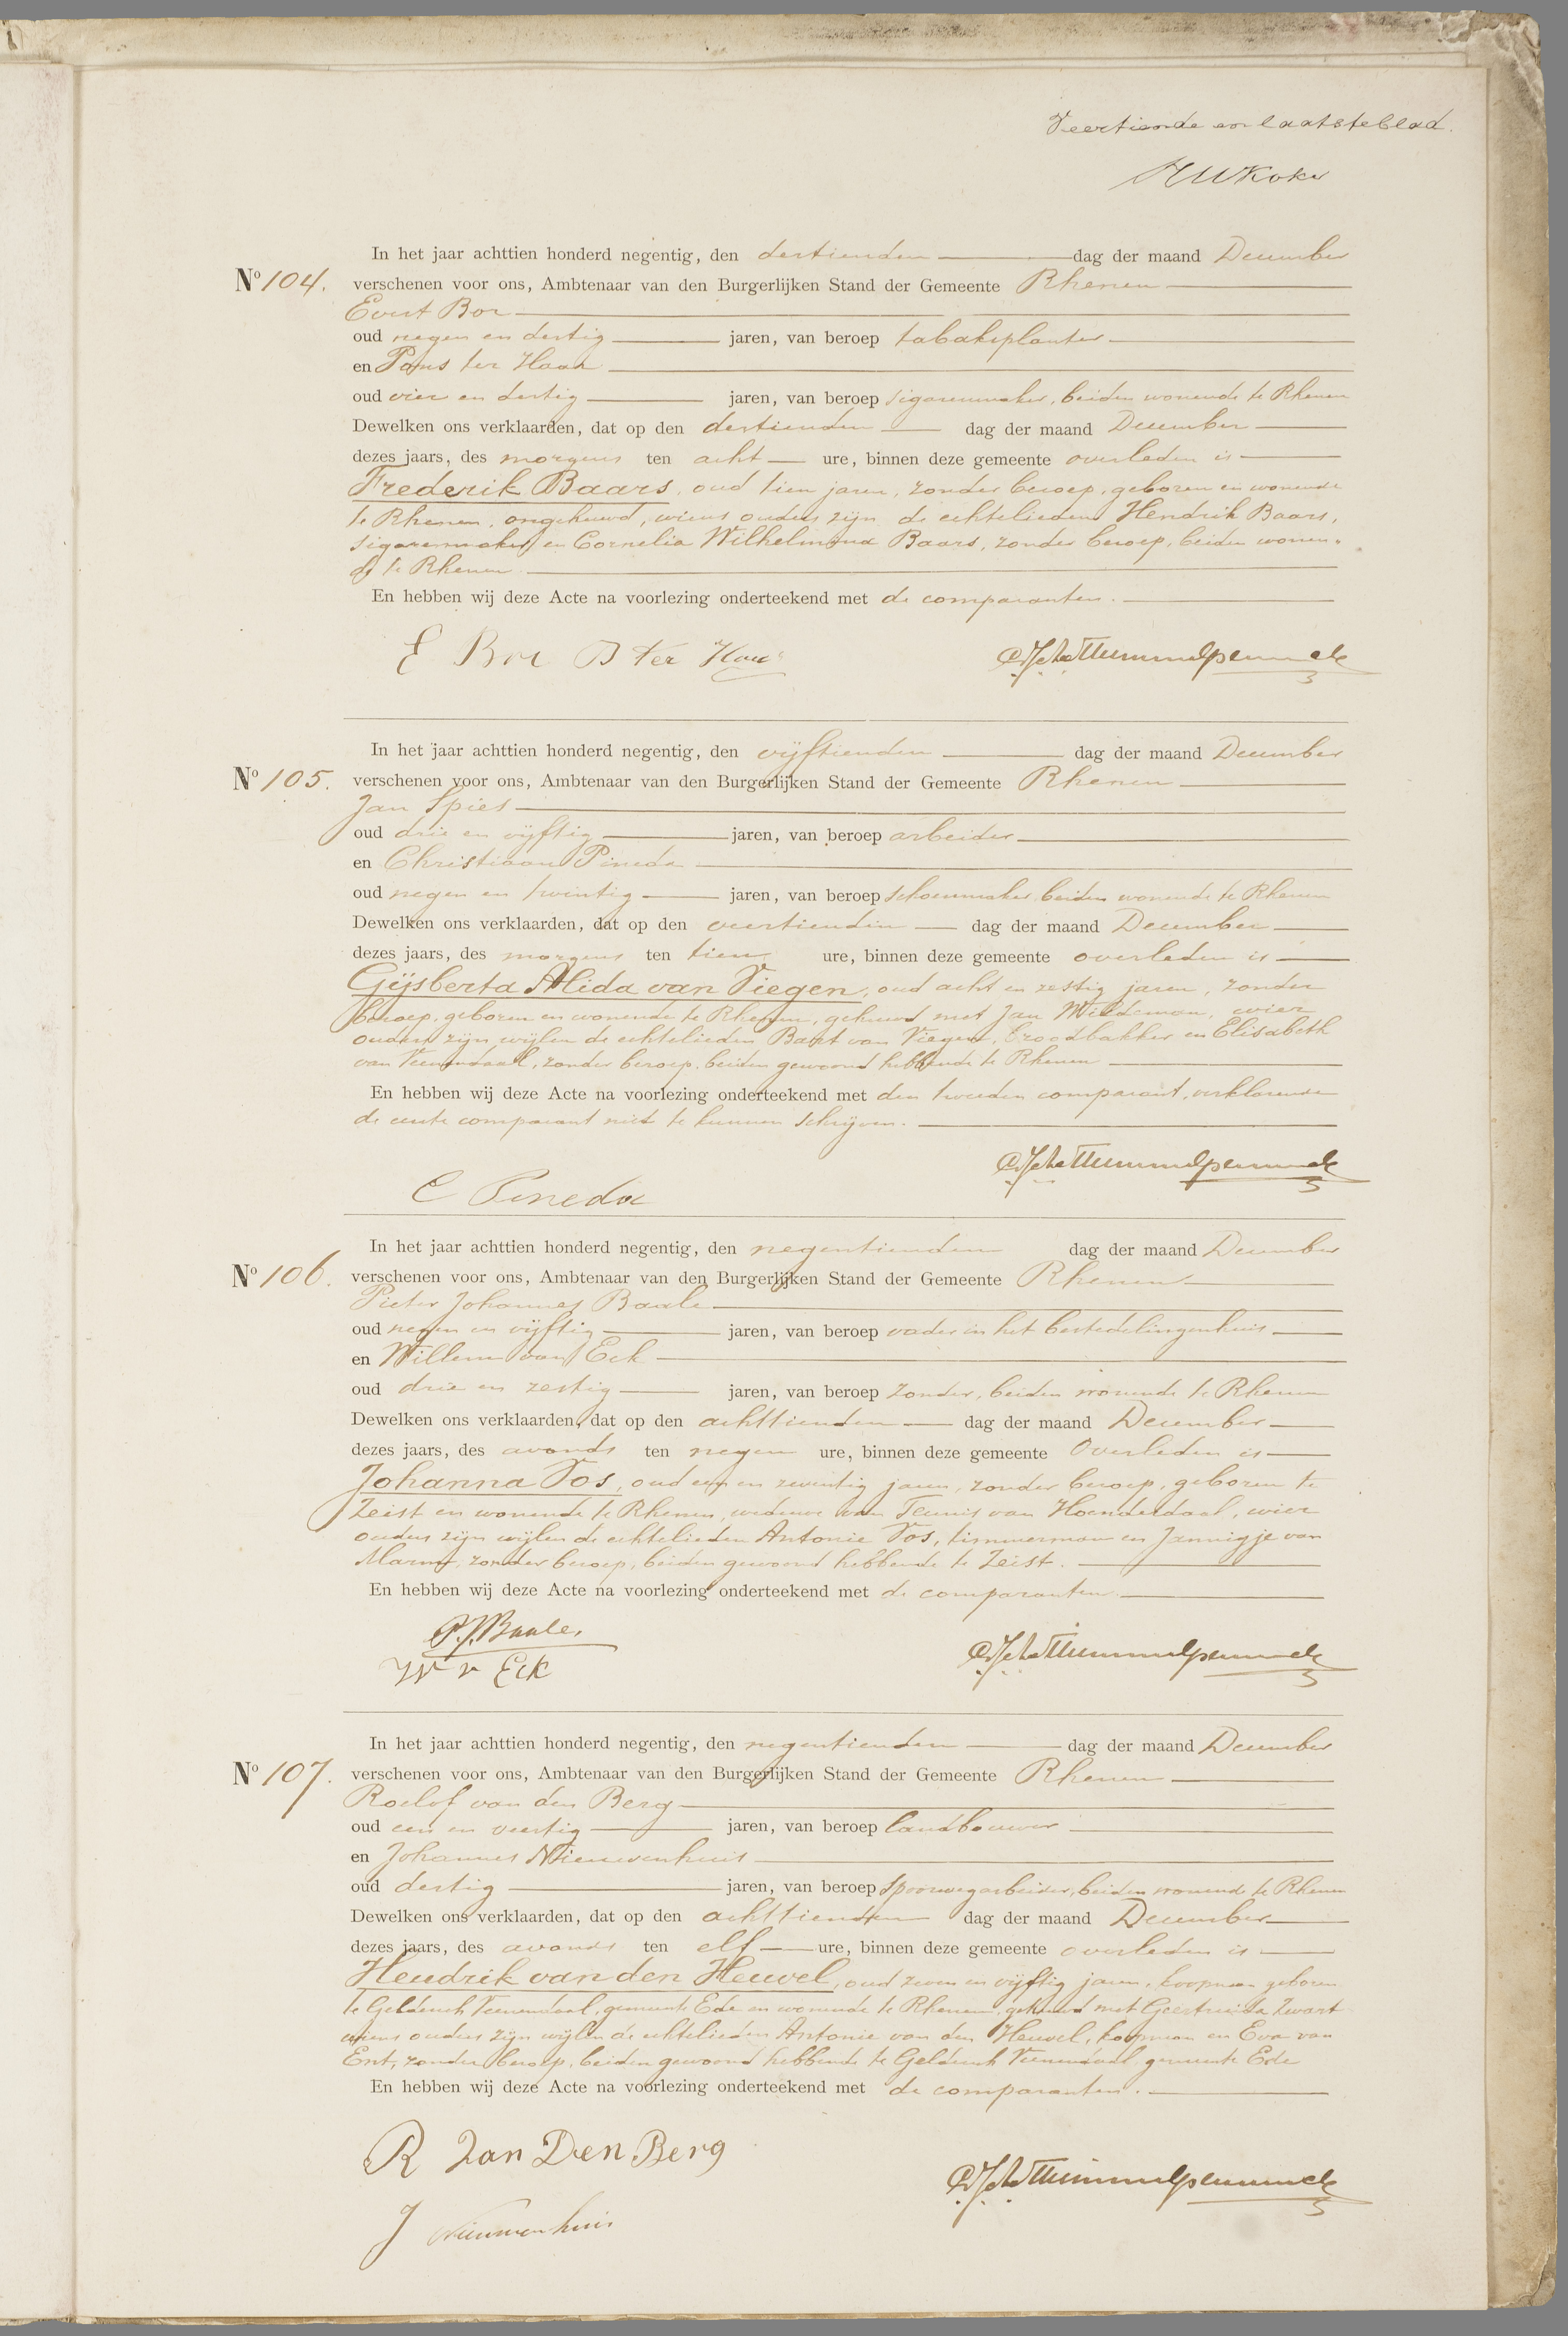 Veertiende en laatste blad.
HWKoker
In het jaar achttien honderd negentig, den dertienden dag der maand December
No 104. verschenen voor ons, Ambtenaar van den Burgerlijken Stand der Gemeente Rhenen
Evert Bor
oud negen en dertig jaren, van beroep tabaksplanter
en Paus ter Haar
oud vier en dertig jaren, van beroep sigarenmaker, beiden wonende te Rhenen
Dewelken ons verklaarden, dat op den dertienden dag der maand December
dezes jaars, des morgens ten acht ure, binnen deze gemeente overleden is
Frederik Baars, oud tien jaren, zonder beroep, geboren en wonende
te Rhenen, ongehuwd, wiens ouders zijn de echtelieden Hendrik Baars,
sigarenmaker en Cornelia Wilhelmina Baars, zonder beroep, beiden wonen-
de te Rhenen
En hebben wij deze Acte na voorlezing onderteekend met de comparanten.
E Bor P ter Haar
In het jaar achttien honderd negentig, den vijftienden dag der maand December
No 105. verschenen voor ons, Ambtenaar van den Burgerlijken Stand der Gemeente Rhenen
Jan Spies
oud drie en vijftig jaren, van beroep arbeider
en Christiaan Pineda
oud negen en twintig jaren, van beroep schoenmaker, beiden wonende te Rhenen
Dewelken ons verklaarden, dat op den veertienden dag der maand December
dezes jaars, des morgens ten tien ure, binnen deze gemeente overleden is
Gijsberta Alida van Viegen, oud acht en zestig jaren, zonder
beroep, geboren en wonende te Rhenen, gehuwd met Jan Mildeman, wier
ouders zijn wijlen de echtelieden Bart van Viegen, broodbakker en Elisabeth
van Veenendaal, zonder beroep, beiden gewoond hebbende te Rhenen
En hebben wij deze Acte na voorlezing onderteekend met den tweeden comparant, verklarende
de eerste comparant niet te kunnen schrijven.
C Pineda
In het jaar achttien honderd negentig, den negentienden dag der maand December
No 106. verschenen voor ons, Ambtenaar van den Burgerlijken Stand der Gemeente Rhenen
Pieter Johannes Baale
oud negen en vijftig jaren, van beroep vader in het bestedelingenhuis
en Willem van Eck
oud drie en zestig jaren, van beroep zonder, beiden wonende te Rhenen
Dewelken ons verklaarden, dat op den achttienden dag der maand December
dezes jaars, des avonds ten negen ure, binnen deze gemeente Overleden is
Johanna Vos, oud een en zeventig jaren, zonder beroep, geboren te
Zeist en wonende te Rhenen, weduwe van Teunis van Hoenderdaal, wier
ouders zijn wijlen de echtelieden Antonie Vos, timmerman en Jannigje van
zonder beroep, beiden gewoond hebbende te Zeist.
En hebben wij deze Acte na voorlezing onderteekend met de comparanten
P.J. Baale.
W v Eck
In het jaar achttien honderd negentig, den negentienden dag der maand December
No 107. verschenen voor ons, Ambtenaar van den Burgerlijken Stand der Gemeente Rhenen
Roelof van den Berg
oud een en veertig jaren, van beroep landbouwer
en Johannes Nieuwenhuis
oud dertig jaren, van beroep spoorwegarbeider, beiden wonend te Rhenen
Dewelken ons verklaarden, dat op den achttienden dag der maand December
dezes jaars, des avonds ten elf ure, binnen deze gemeente overleden is
Hendrik van den Heuvel, oud zeven en vijftig jaren, koopman geboren
te Geldersch Veenendaal, gemeente Ede en wonende te Rhenen, gehuwd met Geertruida Zwart
wiens ouders zijn wijlen de echtelieden Antonie van den Heuvel, koopman en Eva van
Ent, zonder beroep, beiden gewoond hebbende te Geldersch Veenendaal, gemeente Ede
En hebben wij deze Acte na voorlezing onderteekend met de comparanten.
R Van Den Berg
J Nieuwenhuis